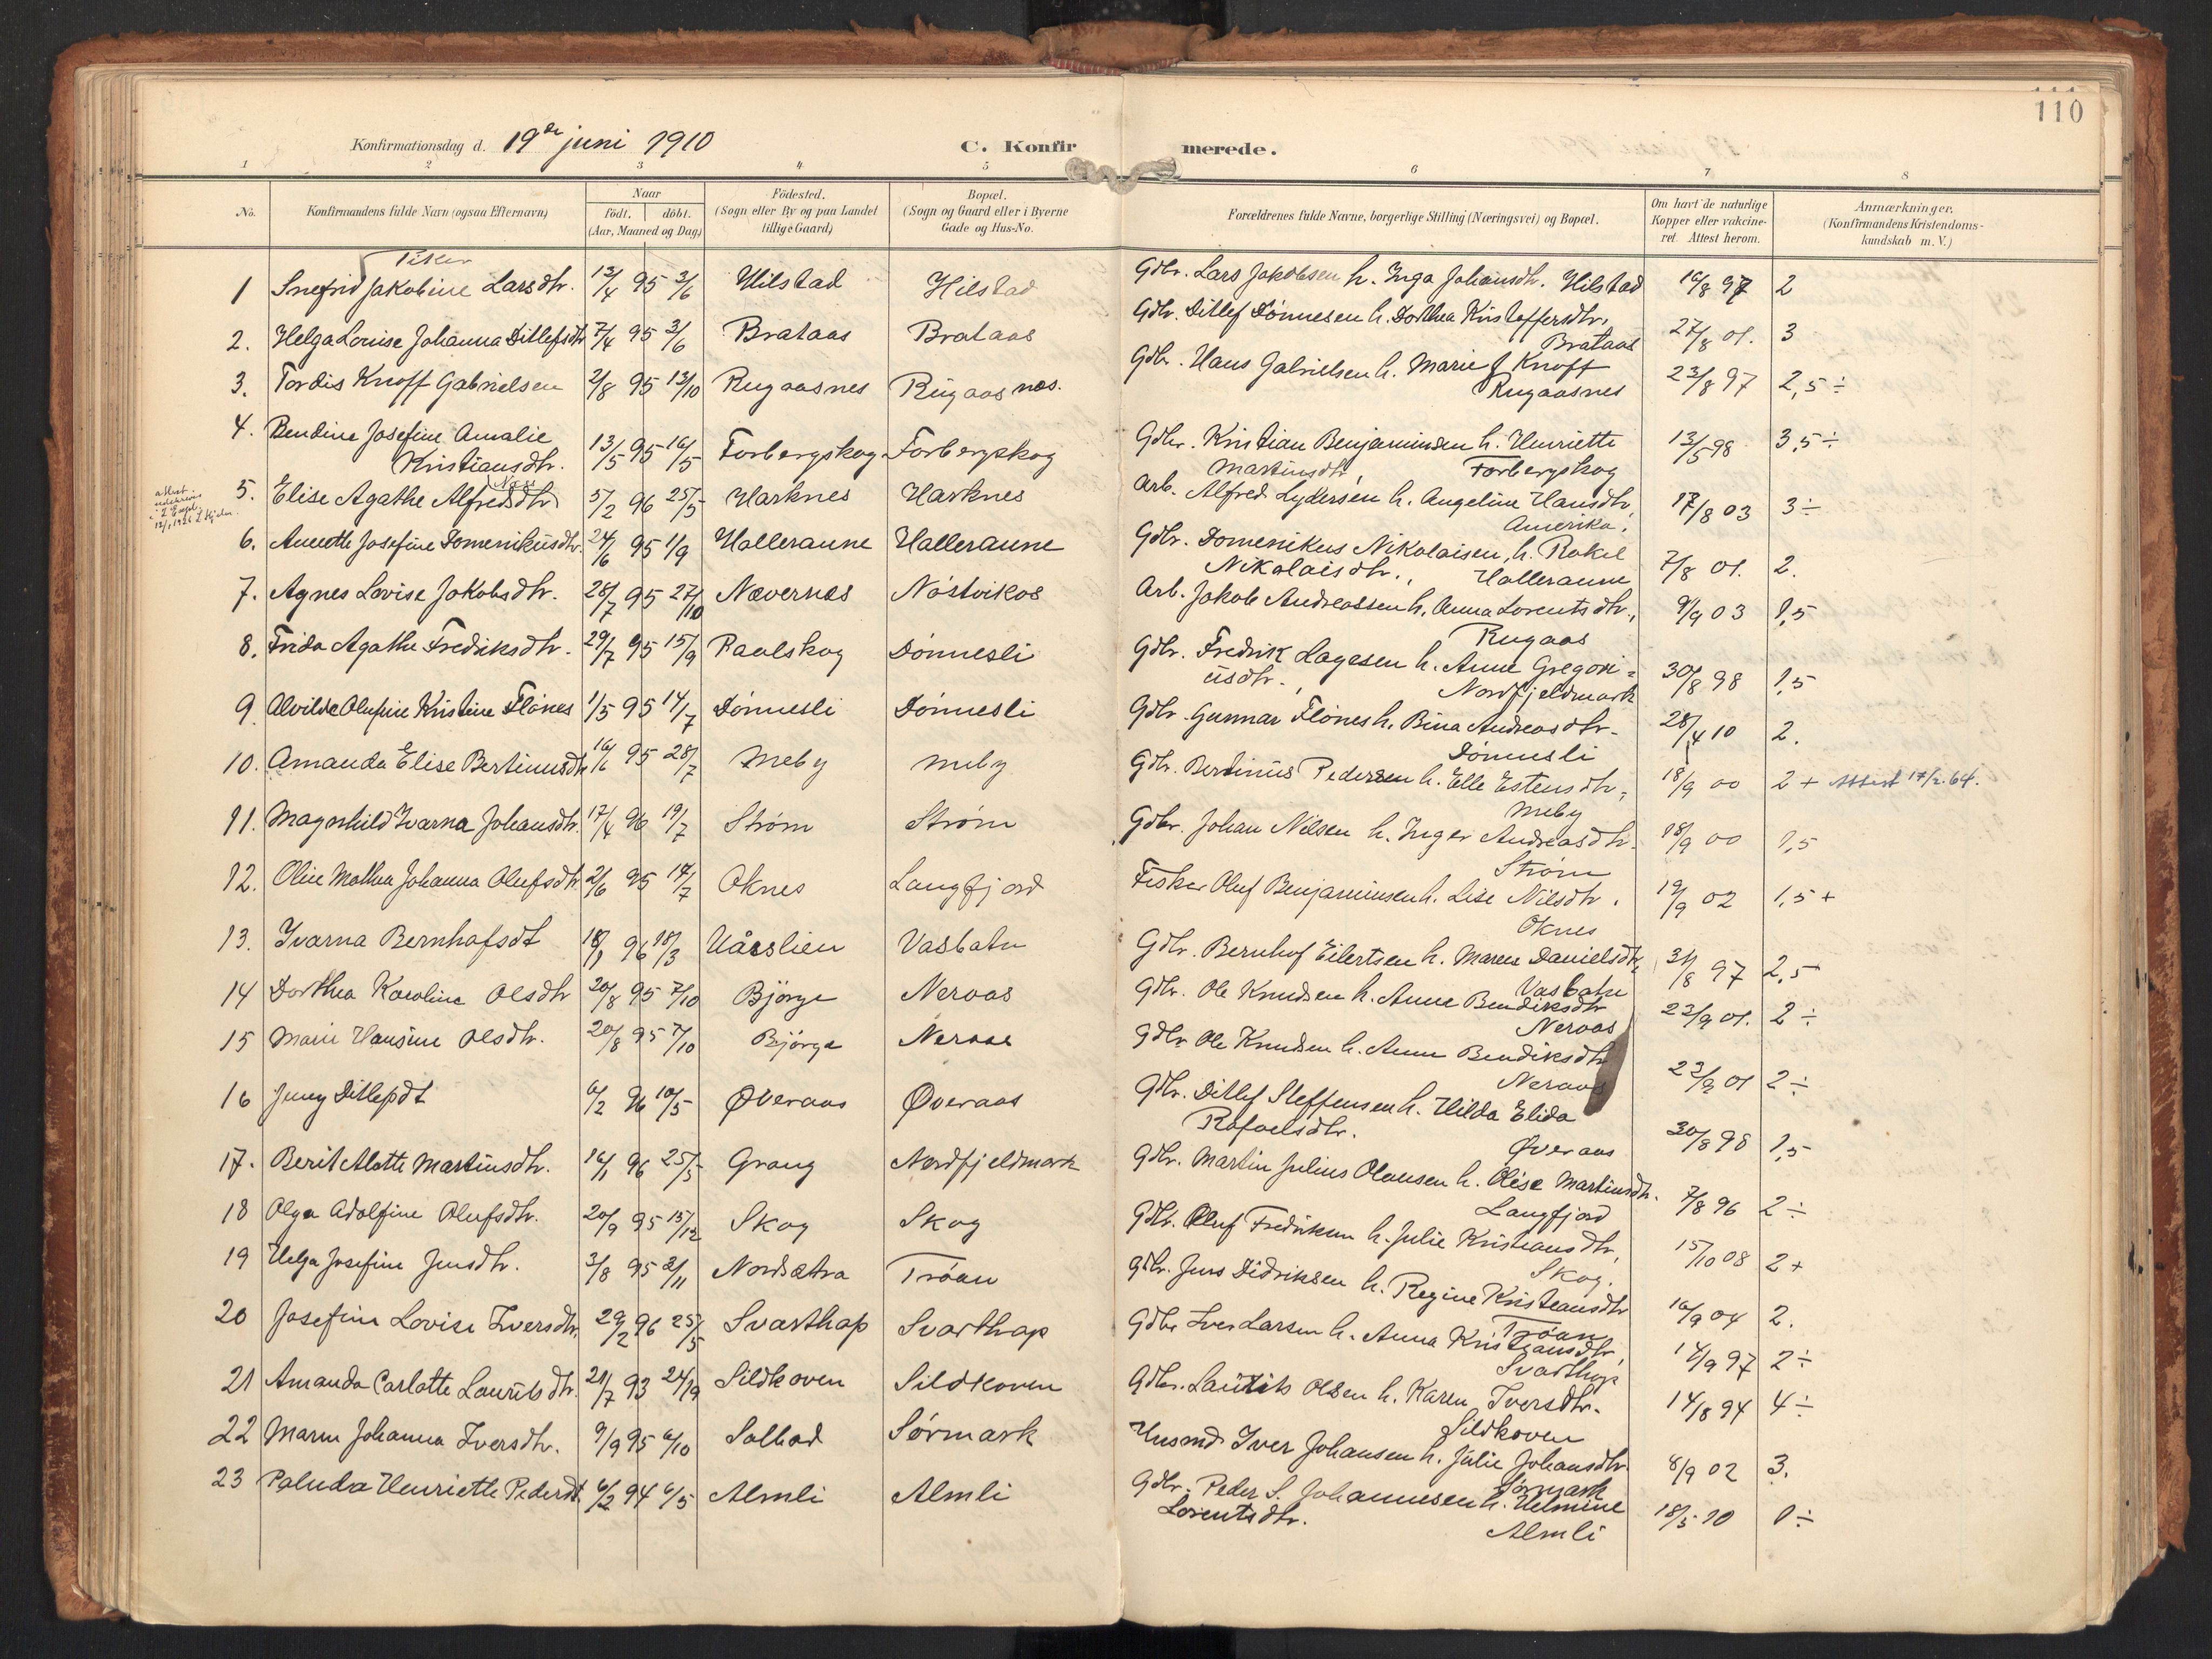 110
Konfirmationsdag d. 19de juni 1910
C. Konfirmerede.
1 2 3 4 5 6 7 8
No.
Konfirmandens fulde Navn (ogsaa Efternavn)
Naar
födt. döbt.
(Aar, Maaned og Dag)
Födested.
(Sogn eller By og paa Landet
tillige Gaard)
Bopæl.
(Sogn og Gaard eller i Byerne
Gade og Hus-No.
Forældrenes fulde Navne, borgerlige Stilling (Næringsvei) og Bopæl.
Om havt de naturlige
Kopper eller vakcine-
ret. Attest herom.
Anmærkninger.
(Konfirmandens Kristendoms-
kundskab m. V.)
1 Snefrid Jakobine Larsdtr. 13/4 95 3/6 Hilstad Hilstad Gdbr. Lars Jakobsen h. Inga Johansdtr. Hilstad 16/8 97 2
2. Helga Louise Johanna Ditlefsdtr 7/4 95 3/6 Brataas Brataas Gdbr. Ditlef Dønnesen h. Dorthea Kristoffersdtr. Brataas 27/8 01. 3
3. Tordis Knoff Gabrielsen 2/8 95 13/10 Rugaasnes Rugaasnes. Gdbr. Hans Gabrielsen h. Marie J Knoff Rugaasnes 23/8 97 2,5 ÷
4. Bendine Josefine Amalie
Kristiansdtr. 13/5 95 16/5 Forbergskog Forbergskog Gdbr. Kristian Benjaminsen h. Henriette
Martinsdtr, Forbergskog 13/5 98 3,5 ÷
5. Elise Agathe Alfredsdtr (Næss) 5/2 96 25/5 Harknes Harknes Arb. Alfred Lydersen h. Angeline Hansdtr, Amerika. 17/8 03 3 ÷
6. Anette Josefine Domenikusdtr. 24/6 95 1/9 Halleraune Halleraune Gdbr. Domenikus Nikolaisen, h. Rakel
Nikolaisdtr., Halleraune 7/8 01. 2.
7. Agnes Lovise Jakobsdtr. 28/7 95 27/10 Nævernes Nøstvikos Arb. Jakob Andreassen h. Anna Lorentsdtr., Rugaas 9/9 03 1,5
8. Frida Agathe Fredriksdtr. 29/7 95 15/9 Raulskog Dønnesli Gdbr. Fredrik Lagesen h. Anne Gregori=
usdtr., Nordfjeldmark 30/8 98 1,5
9. Alvilde Olufine Kristine Flønes 1/5 95 14/7 Dønnesli Dønnesli Gdbr. Gunnar Flønes h. Bina Andreasdtr. Dønnesli 28/4 10 2.
10. Amanda Elise Bertinusdtr 16/6 95 28/7 Meby Meby Gdbr. Bertinus Pedersen h. Elle Estensdtr, Meby 18/9 00 2 + Attest 17/2. 64.
11. Magnhild Ivarna Johansdtr. 17/4 96 19/7 Strøm Strøm Gdbr. Johan Nilsen h. Inger Andreasdtr. Strøm 18/9 00 1,5
12. Oline Mathea Johanna Olufsdtr 2/6 95 14/7 Oknes Langfjord Fisker Oluf Benjaminsen h. Lise Nilsdtr. Oknes 19/9 02 1,5 +
13. Ivarna Bernhofsdt 18/1 96 18/3 Uårslien Vasbatn Gdbr. Bernhof Eilertsen h. Maren Danielsdtr, Vasbatn 31/8 97 2,5
14 Dorthea Karoline Olsdtr 20/8 95 7/10 Bjørge Neraas Gdbr. Ole Knudsen h. Anne Bendiksdtr Neraas 22/9 01. 2 ÷
15 Marie Hansine Olsdtr. 20/8 95 7/10 Bjørge Neraas Gdbr Ole Knudsen h. Anne Bendiksdtr Neraas 22/9 01 2 ÷
16 Jenny Ditlefsdt 6/2 96 10/5 Øveraas Øveraas Gdbr. Ditlef Steffensen h. Hilda Elida
Rafaelsdtr. Øveraas 30/8 98 1,5
17. Berit Alette Martinsdtr. 14/1 96 25/3 Grang Nordfjeldmark Gdbr. Martin Julius Olausen h. Olise Martinsdtr. Langfjord 7/8 96 2 ÷
18 Olga Adolfine Olufsdtr. 20/9 95 15/12 Skog Skog Gdbr. Oluf Fredriksen h. Julie Kristiansdtr, Skog. 15/10 08 2 +
19 Helga Josefine Jensdtr. 3/8 95 2/11 Nordsætra Trøan Gdbr. Jens Didriksen h. Regine Kristiansdtr Trøan 16/9 04 2.
20 Josefine Lovise Iversdtr. 29/2 96 25/5 Svarthap Svarthap Gdbr Iver Larsen h. Anna Kristiansdtr, Svarthap 14/9 97 2 ÷
21 Amanda Carlotte Lauritsdtr. 21/7 93 24/9 Sildkoven Sildkoven Gdbr. Laurits Olsen h. Karen Iversdtr. Sildkoven 14/8 94 4 ÷
22 Maren Johanna Iversdtr. 9/9 95 6/10 Solbad Sørmark Husmd. Iver Johansen h. Julie Johansdtr. Sørmark 8/9 02 3.
23 Paluda Henriette Pedersdt. 6/2 94 6/5 Almli Almli Gdbr. Peder S. Johannesen h. Helmine
Lorentsdtr. Almli 18/5 10 1 ÷